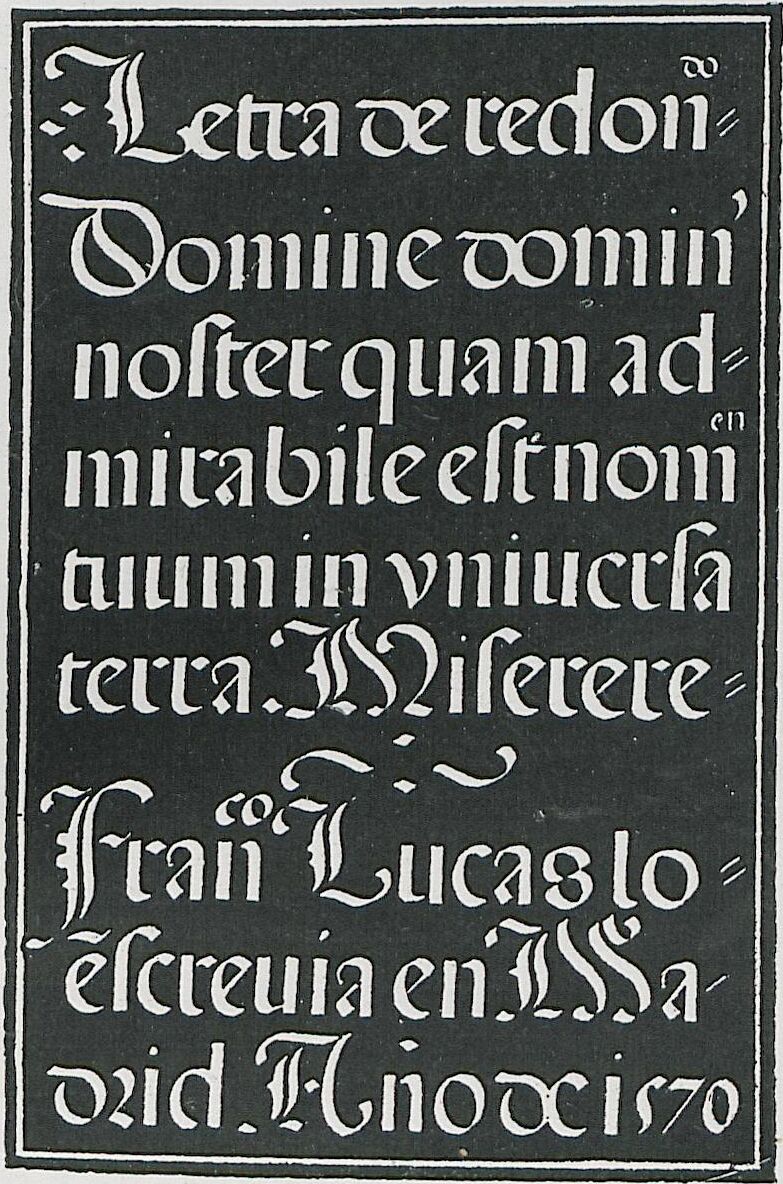 Letra de redonᵈᵒ=
Domine domin’
noſter quam ad=
mirabile eſt nomᵉⁿ
tuum in vniuerſa
terra. Miſerere=
Franᶜᵒ. Lucas lo=
ẽſcreuia en Ma-
drid. Año de 1570